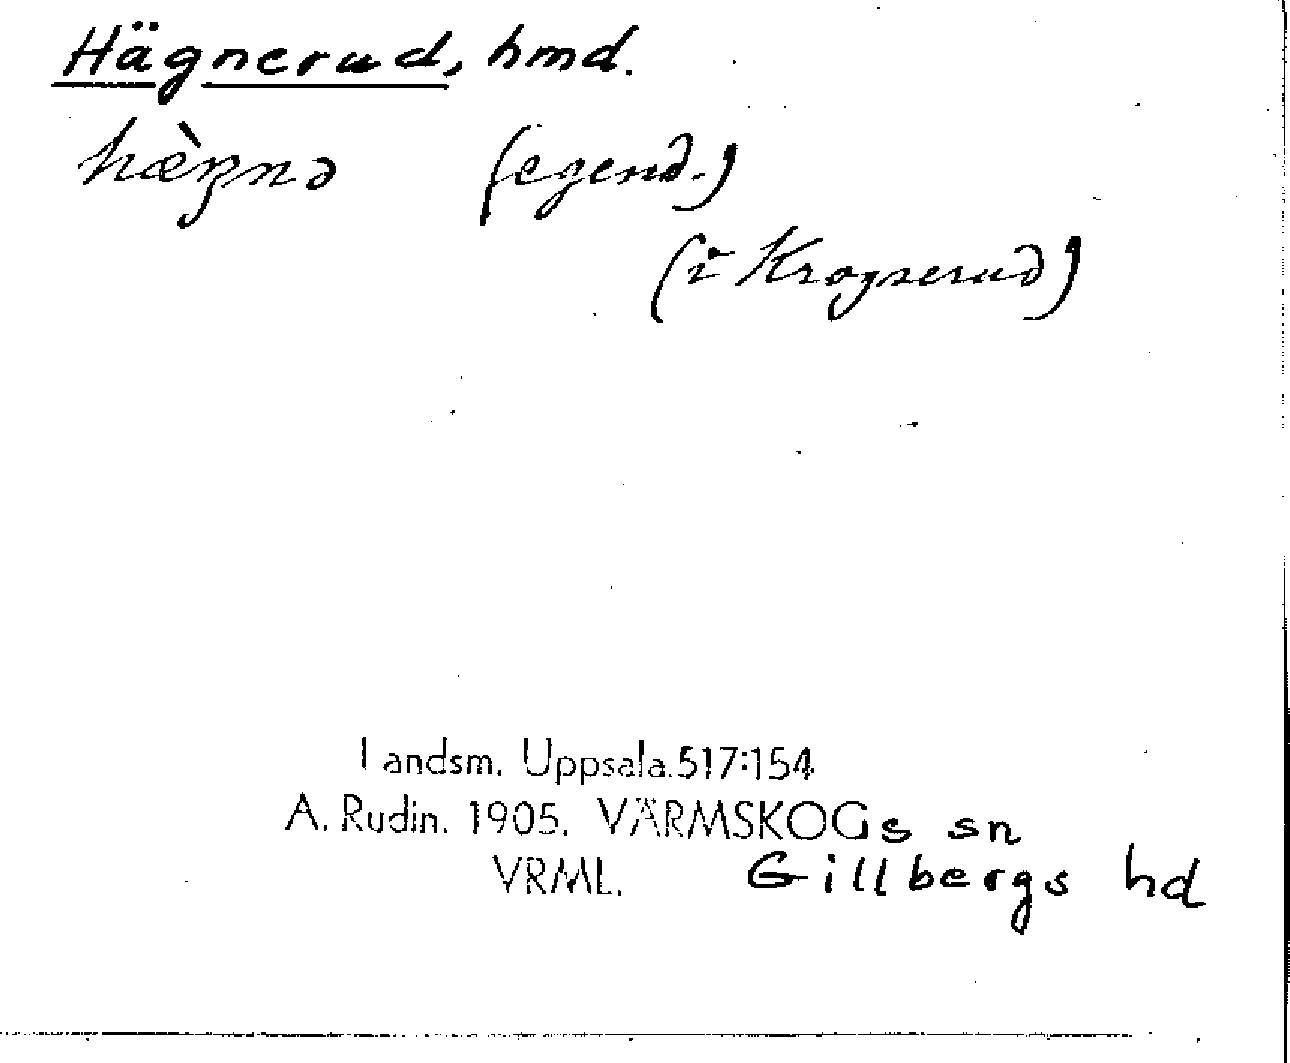 Hägnerud, hmd.
hæ̀gnə (egend.)
(i Krogserud)
Landsm. Uppsala.517:154
A. Rudin. 1905. VÄRMSKOGs sn
VRML. Gillbergs hd